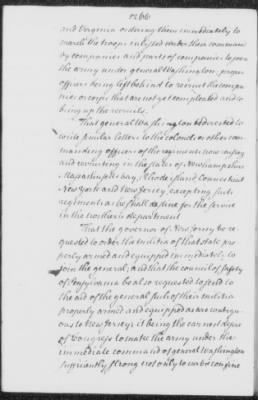 and Virginia ordering them immediately to
march the troops enlisted under their command
by companies and parts of companies to join
the army under general Washington proper
officers being left behind to recruit the compa-
nies or corps that are not yet compleated and to
bring up the recruits.
That general Washington be directed to
write similar letters to the colonels or other com-
manding officers of the regiments now raising
and recruiting in the states of Newhampshire
Massachusetts bay, Rhode island, Connecticut
New York and New Jersey, excepting such
regiments as he shall destine for the service
in the northern department
That the governor of New Jersey be re-
quested to order the militia of that state pro-
perly armed and equipped immediately to
join the general, and that the council of safety
of Pensylvania be also requested to send to
the aid of the general such of their militia
properly armed and equipped as are contigu-
ous to New Jersey; it being the earnest desire
of Congress to make the army under the
immediate command of general Washington
sufficiently strong not only to curb & confine